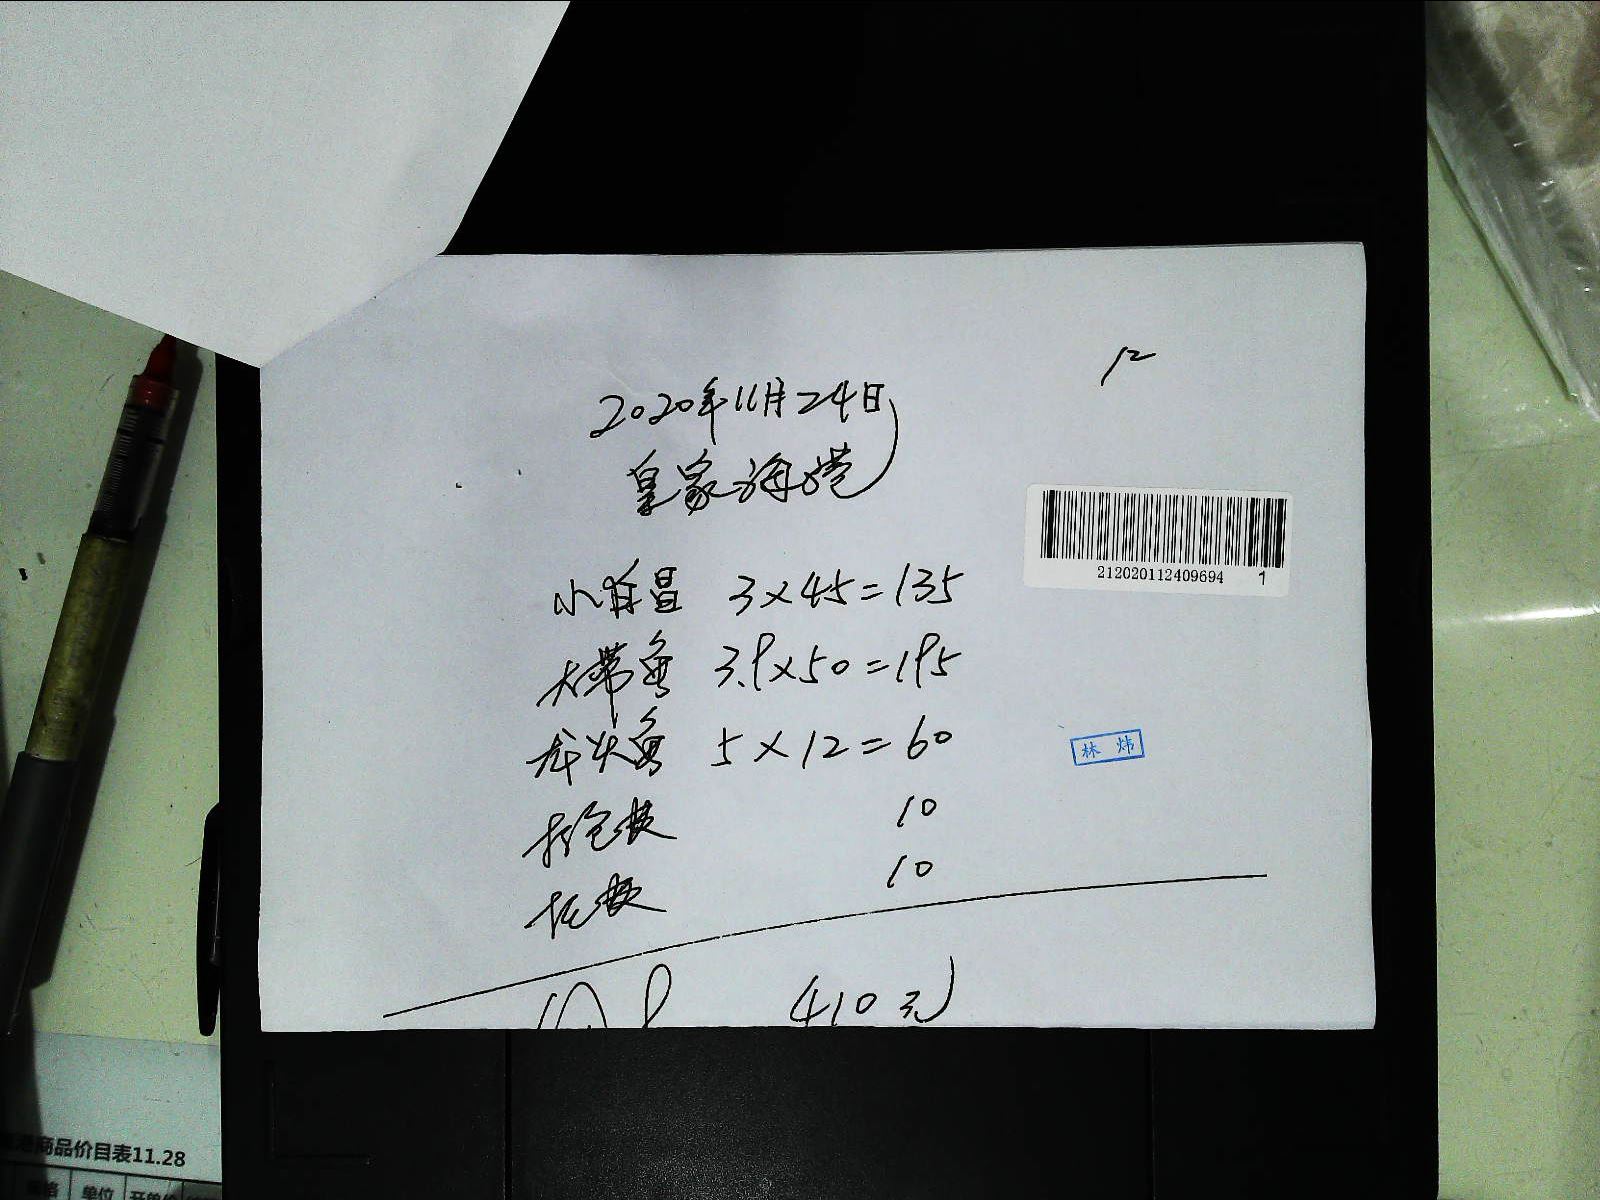 12
2020年11月24日
皇家海港
212020112409694 1
小目昌 3×45=135
大带鱼 3.9×50=195
龙头鱼 5×12=60
林炜
打包费 10
托费 10
410元
商品价目表11.28
单位